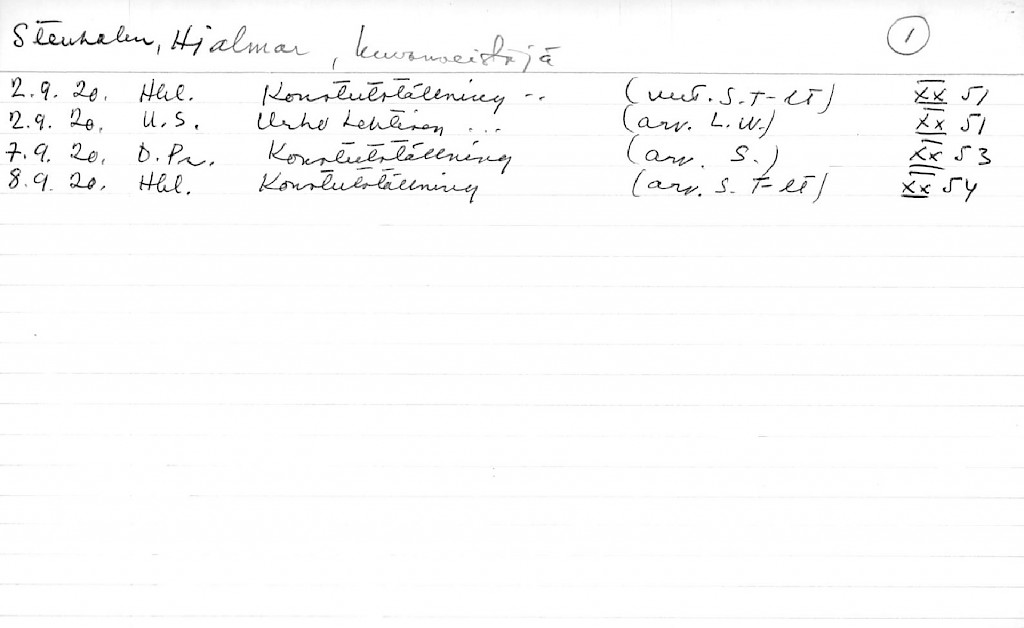 Stenholm, Hjalmar, kuvanveistäjä 1
2.9. 20. Hbl. Konstutställning .. (uut. S.T-lt) XX 51
2.9. 20. U.S. Urho Lehtinen ... (arv. L.W.) XX 51
7.9. 20. D.Pr. Konstutställning (arv. S.) XX 53
8.9. 20. Hbl. Konstutställning (arv. S. T-lt) XX 54